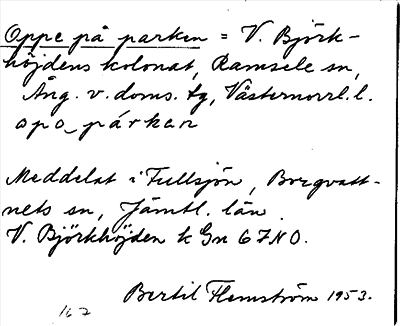 Oppe på parken = V. Björk-
höjdens kolonat, Ramsele sn,
Ång. v. doms. tg, Västernorrl. l.
opo_ párken
Meddelat i Fullsjön, Borgvatt-
nets sn, Jämtl. län.
V. Björkhöjden k Gn 67NO.
Bertil Flemström 1953.
167